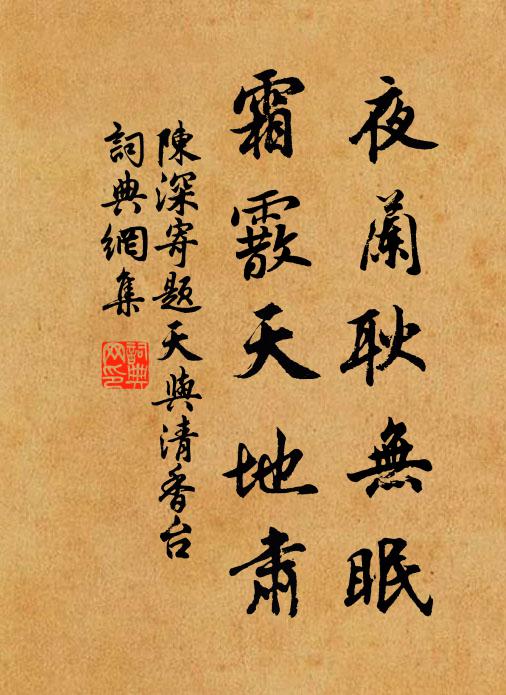 夜蘭耿無眠
霜霰天地肅
陳深寄題天與清香台
詞典網集
詞典网印